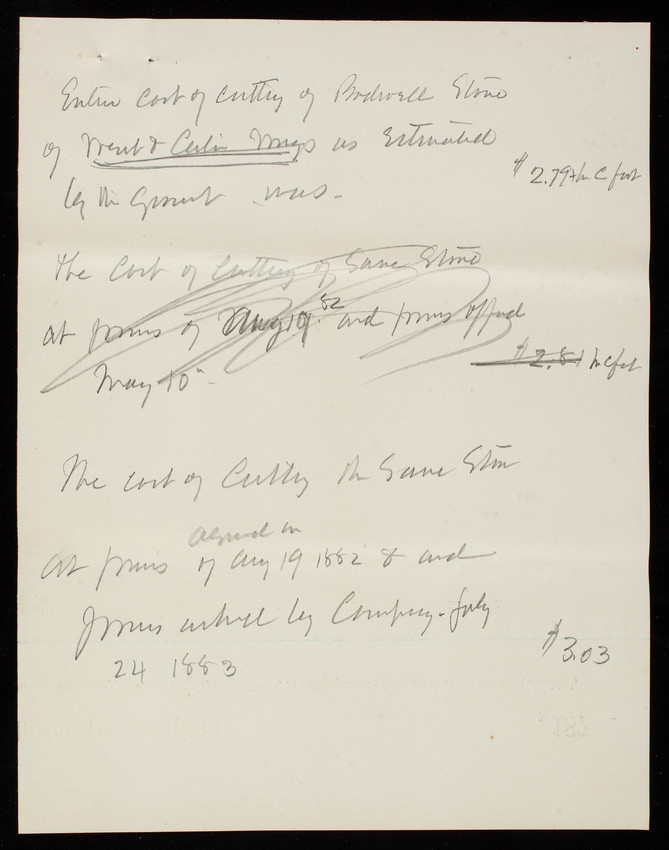 Entire cost of cutting of Bodwell Stone
of West & Center Wings as Estimated
by the Govmt was -
$2.79+ pr C foot
The Cost of Cutting of Same Stone
at prices of Aug 19. 82 and prices offered
May 10"-
$2.81 pr C foot
The cost of Cutting the Same Stone
agreed on
at prices of Aug 19 1882 & and
prices asked by Company - July
24 1883
$3.03